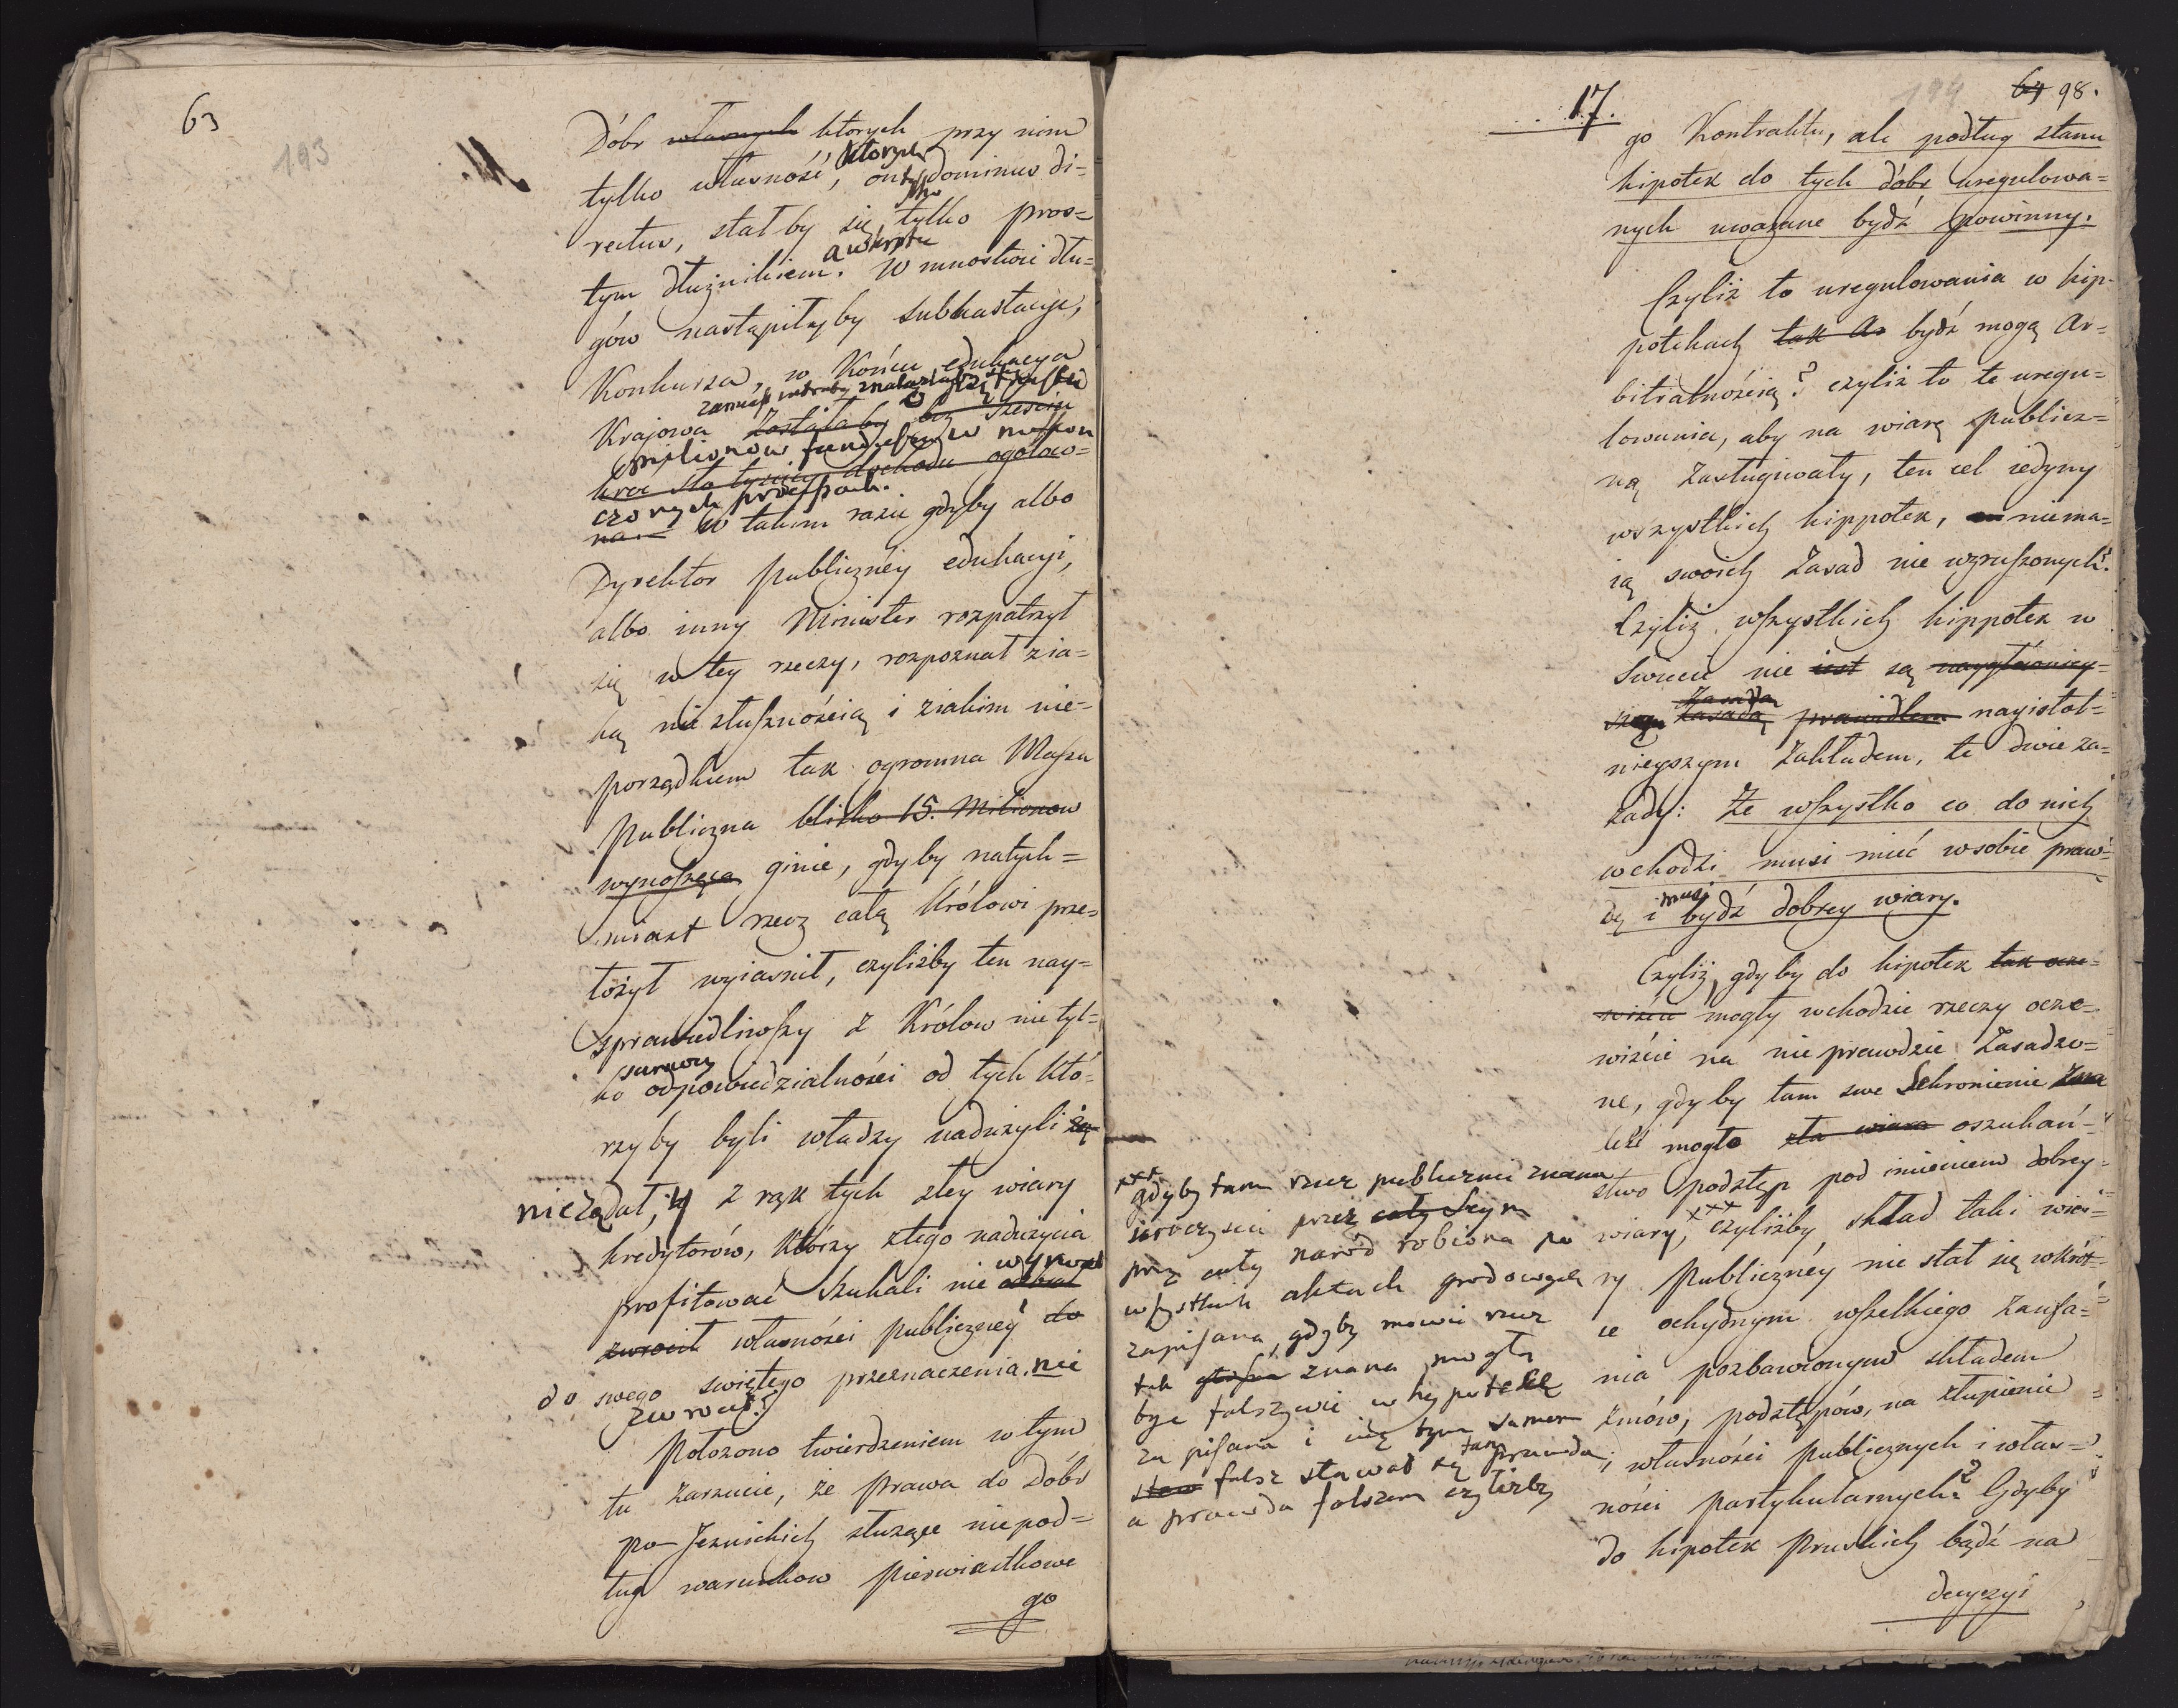 63
193
Dóbr własnych ktorych przy nim
tylko własność, ktorych on dominus di=
rectus, stał by się tylko pros=
tym dłużnikiem. a wkrotce W mnostwie dłu=
gów nastąpiłyby subhastacye,
Konkursa, w Końcu edukacya
zamiast
Krajowa Została by bez sześciu
milionow funduszu w
kroć sto tysięcy dochodu ogołoco=
czonych
na. W takim razie gdyby albo
Dyrektor publiczney edukacyi,
albo inny Minister rozpatrzył
się w tey rzeczy, rozpoznał z ia=
ką nie słusznością i z iakim nie=
porządkiem tak ogromna Massa
Publiczna blisko 15. Milionow
wynosząca ginie, gdyby natych=
miast rzecz całą Królowi prze=
łożył wyiasnił, czyliżby ten nay=
sprawiedliwszy z Królow nie tyl=
ko surowey odpowiedzialności od tych któ=
rzy by byli władzy nadużyli
nie żądał, y z rąk tych złey wiary
kredytorów, którzy złego nadużycia
profitować szukali nie wyrwał odebrał
zwrocił własności publiczney do
do swego świętego przeznaczenia. nie
zwrocił?
Położono twierdzeniem w tym
tu Zarzucie, że Prawa do Dóbr
po-Jezuickich służące nie pod=
ług warunkow pierwiastkowe
go
17.
194
64 98.
go Kontraktu, ale podług stanu
hipotek do tych dóbr uregulowa=
nych uważane bydź powinny.
Czyliż to uregulowania w hip=
potekach tak Ar bydź mogą Ar=
bitralnością? czyliż to te uregu=
lowania, aby na wiarę publicz=
ną Zasługiwały, ten cel iedyny
wszystkich hippotek, nie ma=
ią swoich Zasad nie wzruszonych?
Czyliż wszystkich hippotek w
Swiecie nie iest są naygłówniey=
Zasadą
szą Zasadą prawidłem nayistot=
nieyszym Zakładem, te dwie za=
sady: Że wszystko co do nich
wchodzi musi mieć w sobie praw=
dę i musi bydź dobrey wiary.
Czyliż, gdyby do hipotek tak ocze=
wiście mogły wchodzic rzeczy ocze=
wiście na nie prawdzie Zasadzo=
ne, gdyby tam swe Schronienie Zna
leść mogło zła wiara oszukań=
stwo podstęp pod imieniem dobrey
wiary, xxx czyliżby skład taki wia=
ry Publiczney nie stał się wkrót=
ce ochydnym wszelkiego Zaufa=
nia pozbawionym składem
zmów, podstępów, na złupienie
i własności publicznych i włas=
ności partykularnych? Gdyby
do hipotek Pruskich bądź na
decyzyi
xxx
gdyby tam rzecz publicznie znana
uroczyscie przez cały Seym
prze cały narod robiona po
wszystkich aktach grodowych
zapisana, gdyby mowie rzecz
tak głośna znana mogła
byc fałszywie w hypotekę
za pisana i tym samem
fałsz stawał się tam prawda
a prawda fałszem czyliżby